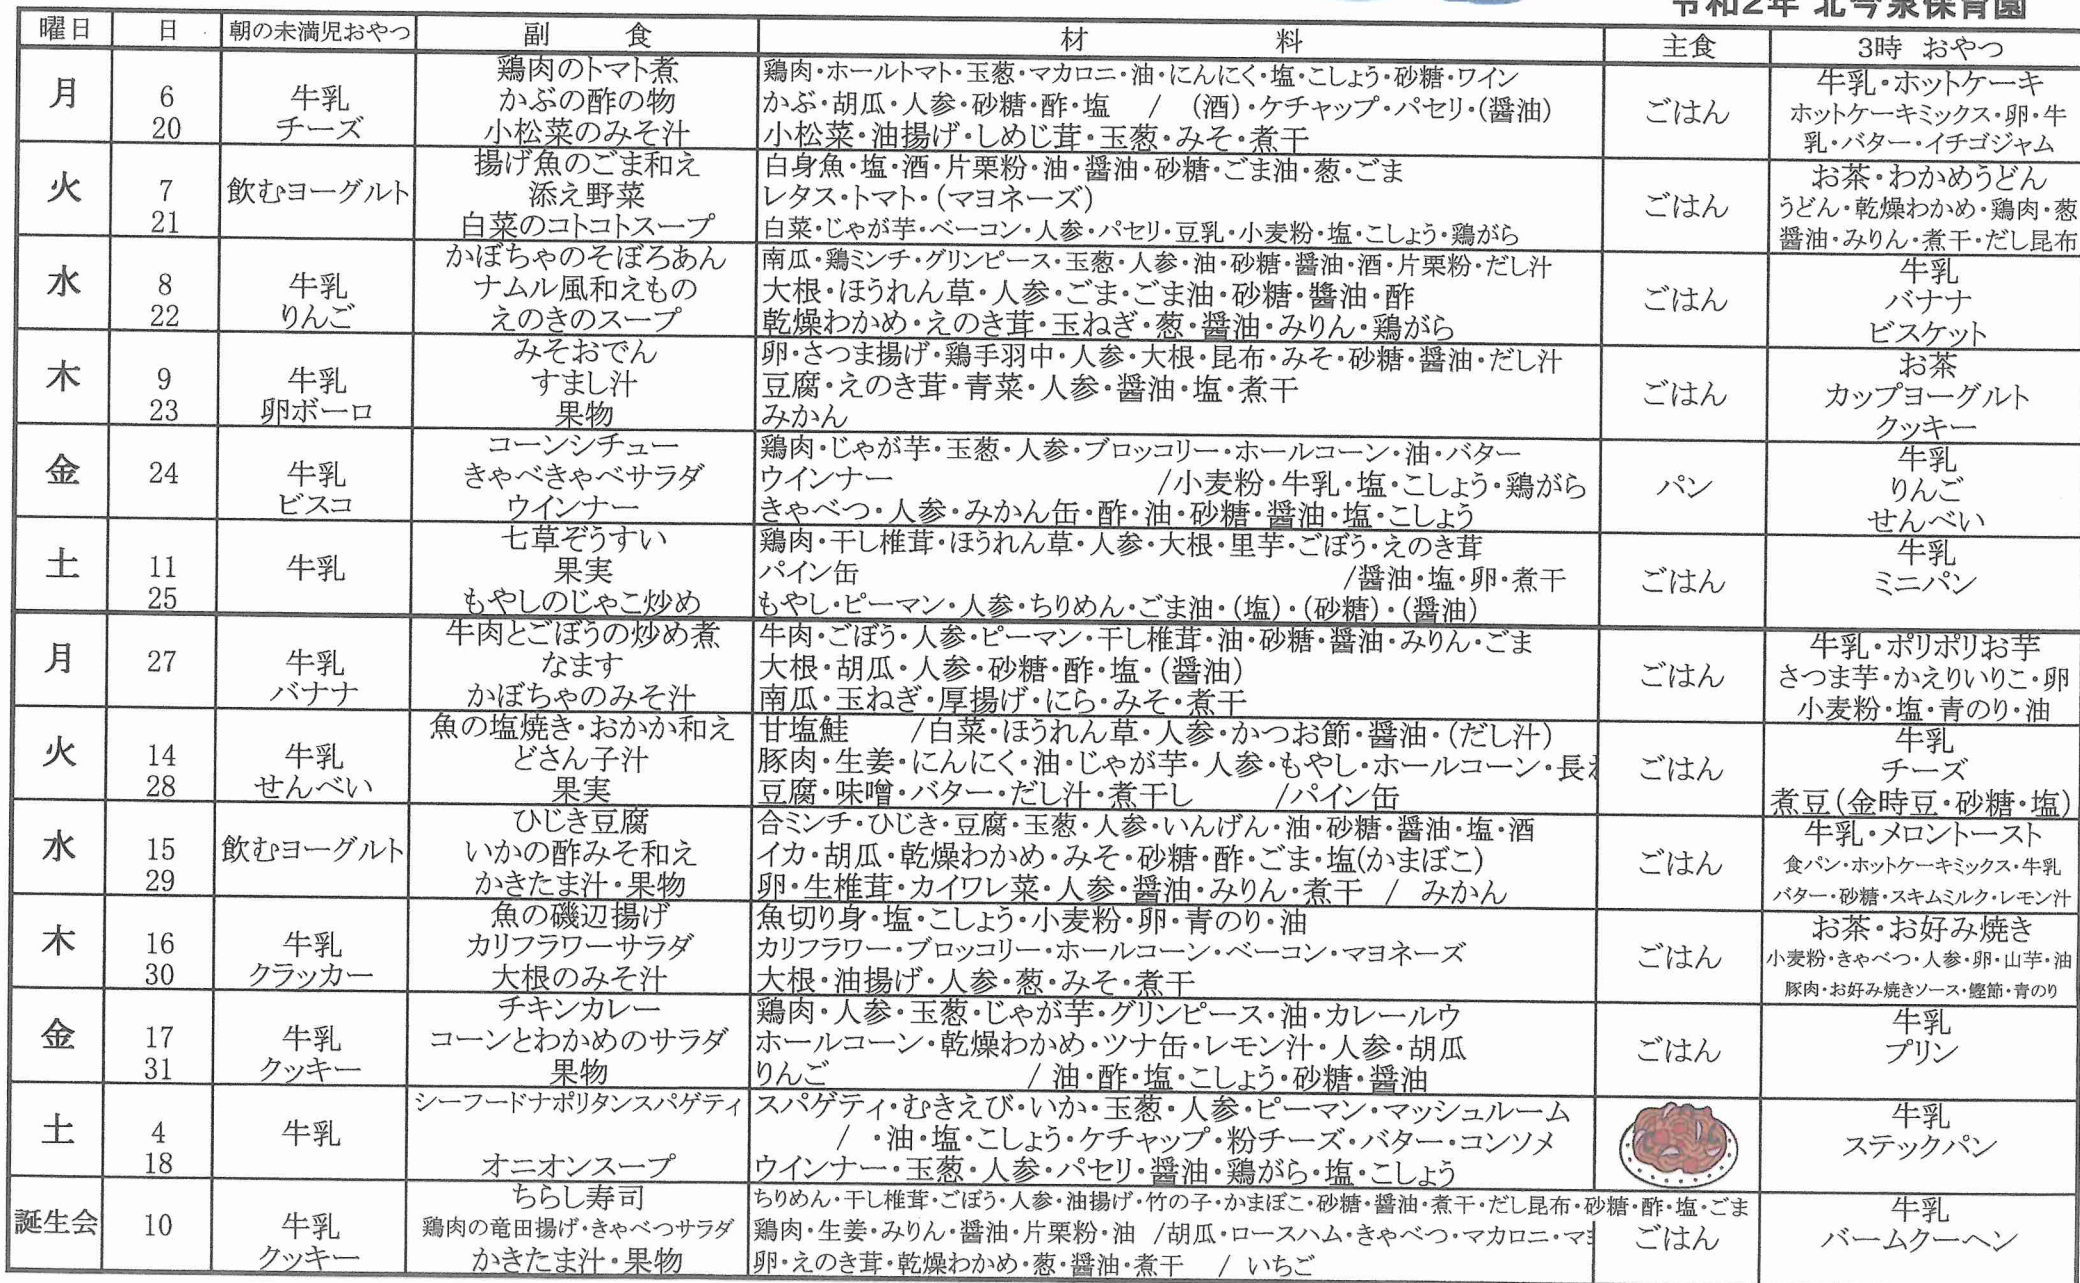 令和2年 北今泉保育園
曜日 日 朝の未満児おやつ 副 食 材 料 主食 3時 おやつ
月 6 20 牛乳 チーズ
鶏肉のトマト煮
かぶの酢の物
小松菜のみそ汁
鶏肉・ホールトマト・玉葱・マカロニ・油・にんにく・塩・こしょう・砂糖・ワイン
かぶ・胡瓜・人参・砂糖・酢・塩 / (酒)・ケチャップ・パセリ・(醤油)
小松菜・油揚げ・しめじ茸・玉葱・みそ・煮干
ごはん
牛乳・ホットケーキ
ホットケーキミックス・卵・牛
乳・バター・イチゴジャム
火 7 21 飲むヨーグルト
揚げ魚のごま和え
添え野菜
白菜のコトコトスープ
白身魚・塩・酒・片栗粉・油・醤油・砂糖・ごま油・葱・ごま
レタス・トマト・(マヨネーズ)
白菜・じゃが芋・ベーコン・人参・パセリ・豆乳・小麦粉・塩・こしょう・鶏がら
ごはん
お茶・わかめうどん
うどん・乾燥わかめ・鶏肉・葱
醤油・みりん・煮干・だし昆布
水 8 22 牛乳 りんご
かぼちゃのそぼろあん
ナムル風和えもの
えのきのスープ
南瓜・鶏ミンチ・グリンピース・玉葱・人参・油・砂糖・醤油・酒・片栗粉・だし汁
大根・ほうれん草・人参・ごま・ごま油・砂糖・醬油・酢
乾燥わかめ・えのき茸・玉ねぎ・葱・醤油・みりん・鶏がら
ごはん
牛乳
バナナ
ビスケット
木 9 23 牛乳 卵ボーロ
みそおでん
すまし汁
果物
卵・さつま揚げ・鶏手羽中・人参・大根・昆布・みそ・砂糖・醤油・だし汁
豆腐・えのき茸・青菜・人参・醤油・塩・煮干
みかん
ごはん
お茶
カップヨーグルト
クッキー
金 24 牛乳 ビスコ
コーンシチュー
きゃべきゃべサラダ
ウインナー
鶏肉・じゃが芋・玉葱・人参・ブロッコリー・ホールコーン・油・バター
ウインナー /小麦粉・牛乳・塩・こしょう・鶏がら
きゃべつ・人参・みかん缶・酢・油・砂糖・醤油・塩・こしょう
パン
牛乳
りんご
せんべい
土 11 25 牛乳
七草ぞうすい
果実
もやしのじゃこ炒め
鶏肉・干し椎茸・ほうれん草・人参・大根・里芋・ごぼう・えのき茸
パイン缶 /醤油・塩・卵・煮干
もやし・ピーマン・人参・ちりめん・ごま油・(塩)・(砂糖)・(醤油)
ごはん
牛乳
ミニパン
月 27 牛乳 バナナ
牛肉とごぼうの炒め煮
なます
かぼちゃのみそ汁
牛肉・ごぼう・人参・ピーマン・干し椎茸・油・砂糖・醤油・みりん・ごま
大根・胡瓜・人参・砂糖・酢・塩・(醤油)
南瓜・玉ねぎ・厚揚げ・にら・みそ・煮干
ごはん
牛乳・ポリポリお芋
さつま芋・かえりいりこ・卵
小麦粉・塩・青のり・油
火 14 28 牛乳 せんべい
魚の塩焼き・おかか和え
どさん子汁
果実
甘塩鮭 /白菜・ほうれん草・人参・かつお節・醤油・(だし汁)
豚肉・生姜・にんにく・油・じゃが芋・人参・もやし・ホールコーン・長
豆腐・味噌・バター・だし汁・煮干し /パイン缶
ごはん
牛乳
チーズ
煮豆(金時豆・砂糖・塩)
水 15 29 飲むヨーグルト
ひじき豆腐
いかの酢みそ和え
かきたま汁・果物
合ミンチ・ひじき・豆腐・玉葱・人参・いんげん・油・砂糖・醤油・塩・酒
イカ・胡瓜・乾燥わかめ・みそ・砂糖・酢・ごま・塩(かまぼこ)
卵・生椎茸・カイワレ菜・人参・醤油・みりん・煮干 / みかん
ごはん
牛乳・メロントースト
食パン・ホットケーキミックス・牛乳
バター・砂糖・スキムミルク・レモン汁
木 16 30 牛乳 クラッカー
魚の磯辺揚げ
カリフラワーサラダ
大根のみそ汁
魚切り身・塩・こしょう・小麦粉・卵・青のり・油
カリフラワー・ブロッコリー・ホールコーン・ベーコン・マヨネーズ
大根・油揚げ・人参・葱・みそ・煮干
ごはん
お茶・お好み焼き
小麦粉・きゃべつ・人参・卵・山芋・油
豚肉・お好み焼きソース・鰹節・青のり
金 17 31 牛乳 クッキー
チキンカレー
コーンとわかめのサラダ
果物
鶏肉・人参・玉葱・じゃが芋・グリンピース・油・カレールウ
ホールコーン・乾燥わかめ・ツナ缶・レモン汁・人参・胡瓜
りんご / 油・酢・塩・こしょう・砂糖・醤油
ごはん
牛乳
プリン
土 4 18 牛乳
シーフードナポリタンスパゲティ
オニオンスープ
スパゲティ・むきえび・いか・玉葱・人参・ピーマン・マッシュルーム
/ ・油・塩・こしょう・ケチャップ・粉チーズ・バター・コンソメ
ウインナー・玉葱・人参・パセリ・醤油・鶏がら・塩・こしょう
牛乳
ステックパン
誕生会 10 牛乳 クッキー
ちらし寿司
鶏肉の竜田揚げ・きゃべつサラダ
かきたま汁・果物
ちりめん・干し椎茸・ごぼう・人参・油揚げ・竹の子・かまぼこ・砂糖・醤油・煮干・だし昆布・砂糖・酢・塩・ごま
鶏肉・生姜・みりん・醤油・片栗粉・油 /胡瓜・ロースハム・きゃべつ・マカロニ・マ
卵・えのき茸・乾燥わかめ・葱・醤油・煮干 / いちご
ごはん
牛乳
バームクーヘン